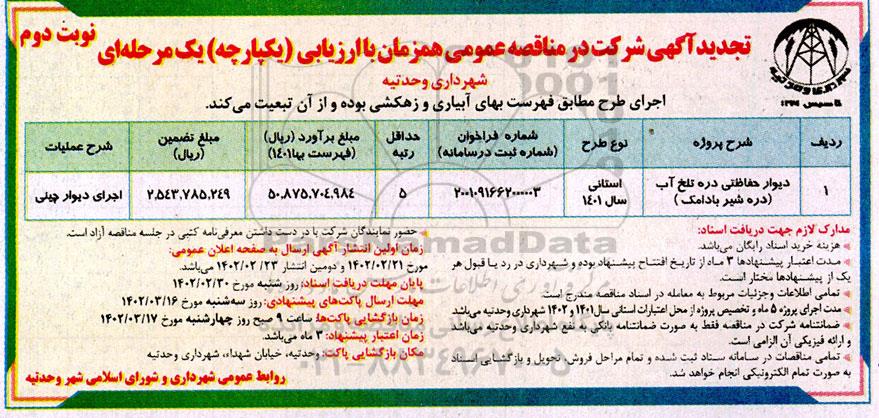 تجدید آگهی شرکت در مناقصه عمومی همزمان با ارزیابی (یکپارچه) یک مرحله‌ای
نوبت دوم
شهرداری وحدتیه
تاسیس ۱۳۷۴
اجرای طرح مطابق فهرست بهای آبیاری و زهکشی بوده و از آن تبعیت می‌کند.
ردیف | شرح پروژه | نوع طرح | شماره فراخوان (شماره ثبت درسامانه) | حداقل رتبه | مبلغ برآورد (ریال) (فهرست بها۱۴۰۱) | مبلغ تضمین (ریال) | شرح عملیات
۱ | دیوار حفاظتی دره تلخ آب (دره شیر بادامک) | استانی سال ۱۴۰۱ | ۲۰۰۱۰۹۱۶۶۲۰۰۰۰۰۳ | ۵ | ۵۰،۸۷۵،۷۰۴،۹۸۴ | ۲،۵۴۳،۷۸۵،۲۴۹ | اجرای دیوار چینی
مدارک لازم جهت دریافت اسناد:
هزینه خرید اسناد رایگان می‌باشد.
مدت اعتبار پیشنهادها ۳ ماه از تاریخ افتتاح پیشنهاد بوده و شهرداری در رد یا قبول هر
یک از پیشنهادها مختار است.
تمامی اطلاعات وجزئیات مربوط به معامله در اسناد مناقصه مندرج است.
مدت اجرای پروژه ۵ ماه و تخصیص پروژه از محل اعتبارات استانی سال۱۴۰۱ و ۱۴۰۲ شهرداری وحدتیه می‌باشد
ضمانتنامه شرکت در مناقصه فقط به صورت ضمانتنامه بانکی به نفع شهرداری وحدتیه می‌باشد
و ارائه فیزیکی آن الزامی است.
تمامی مناقصات در سامانه ستاد ثبت شده و تمام مراحل فروش، تحویل و بازگشایی اسناد
به صورت تمام الکترونیکی انجام خواهد شد.
حضور نمایندگان شرکت با در دست داشتن معرفی‌نامه کتبی در جلسه مناقصه آزاد است.
زمان اولین انتشار آگهی ارسال به صفحه اعلان عمومی:
مورخ ۱۴۰۲/۰۲/۲۱ و دومین انتشار ۲۳/ ۱۴۰۲/۰۲ می‌باشد.
پایان مهلت دریافت اسناد: روز شنبه مورخ ۱۴۰۲/۰۲/۳۰
مهلت ارسال پاکت‌های پیشنهادی: روز سه‌شنبه مورخ ۱۴۰۲/۰۳/۱۶
زمان بازگشایی پاکت‌ها: ساعت ۹ صبح روز چهارشنبه مورخ ۱۴۰۲/۰۳/۱۷
زمان اعتبار پیشنهاد: ۳ ماه می‌باشد.
مکان بازگشایی پاکت: وحدتیه، خیابان شهداء، شهرداری وحدتیه
روابط عمومی شهرداری و شورای اسلامی شهر وحدتیه
ParsNamadData
۰۲۱-۸۸۳۴۹۶۷۰-۵